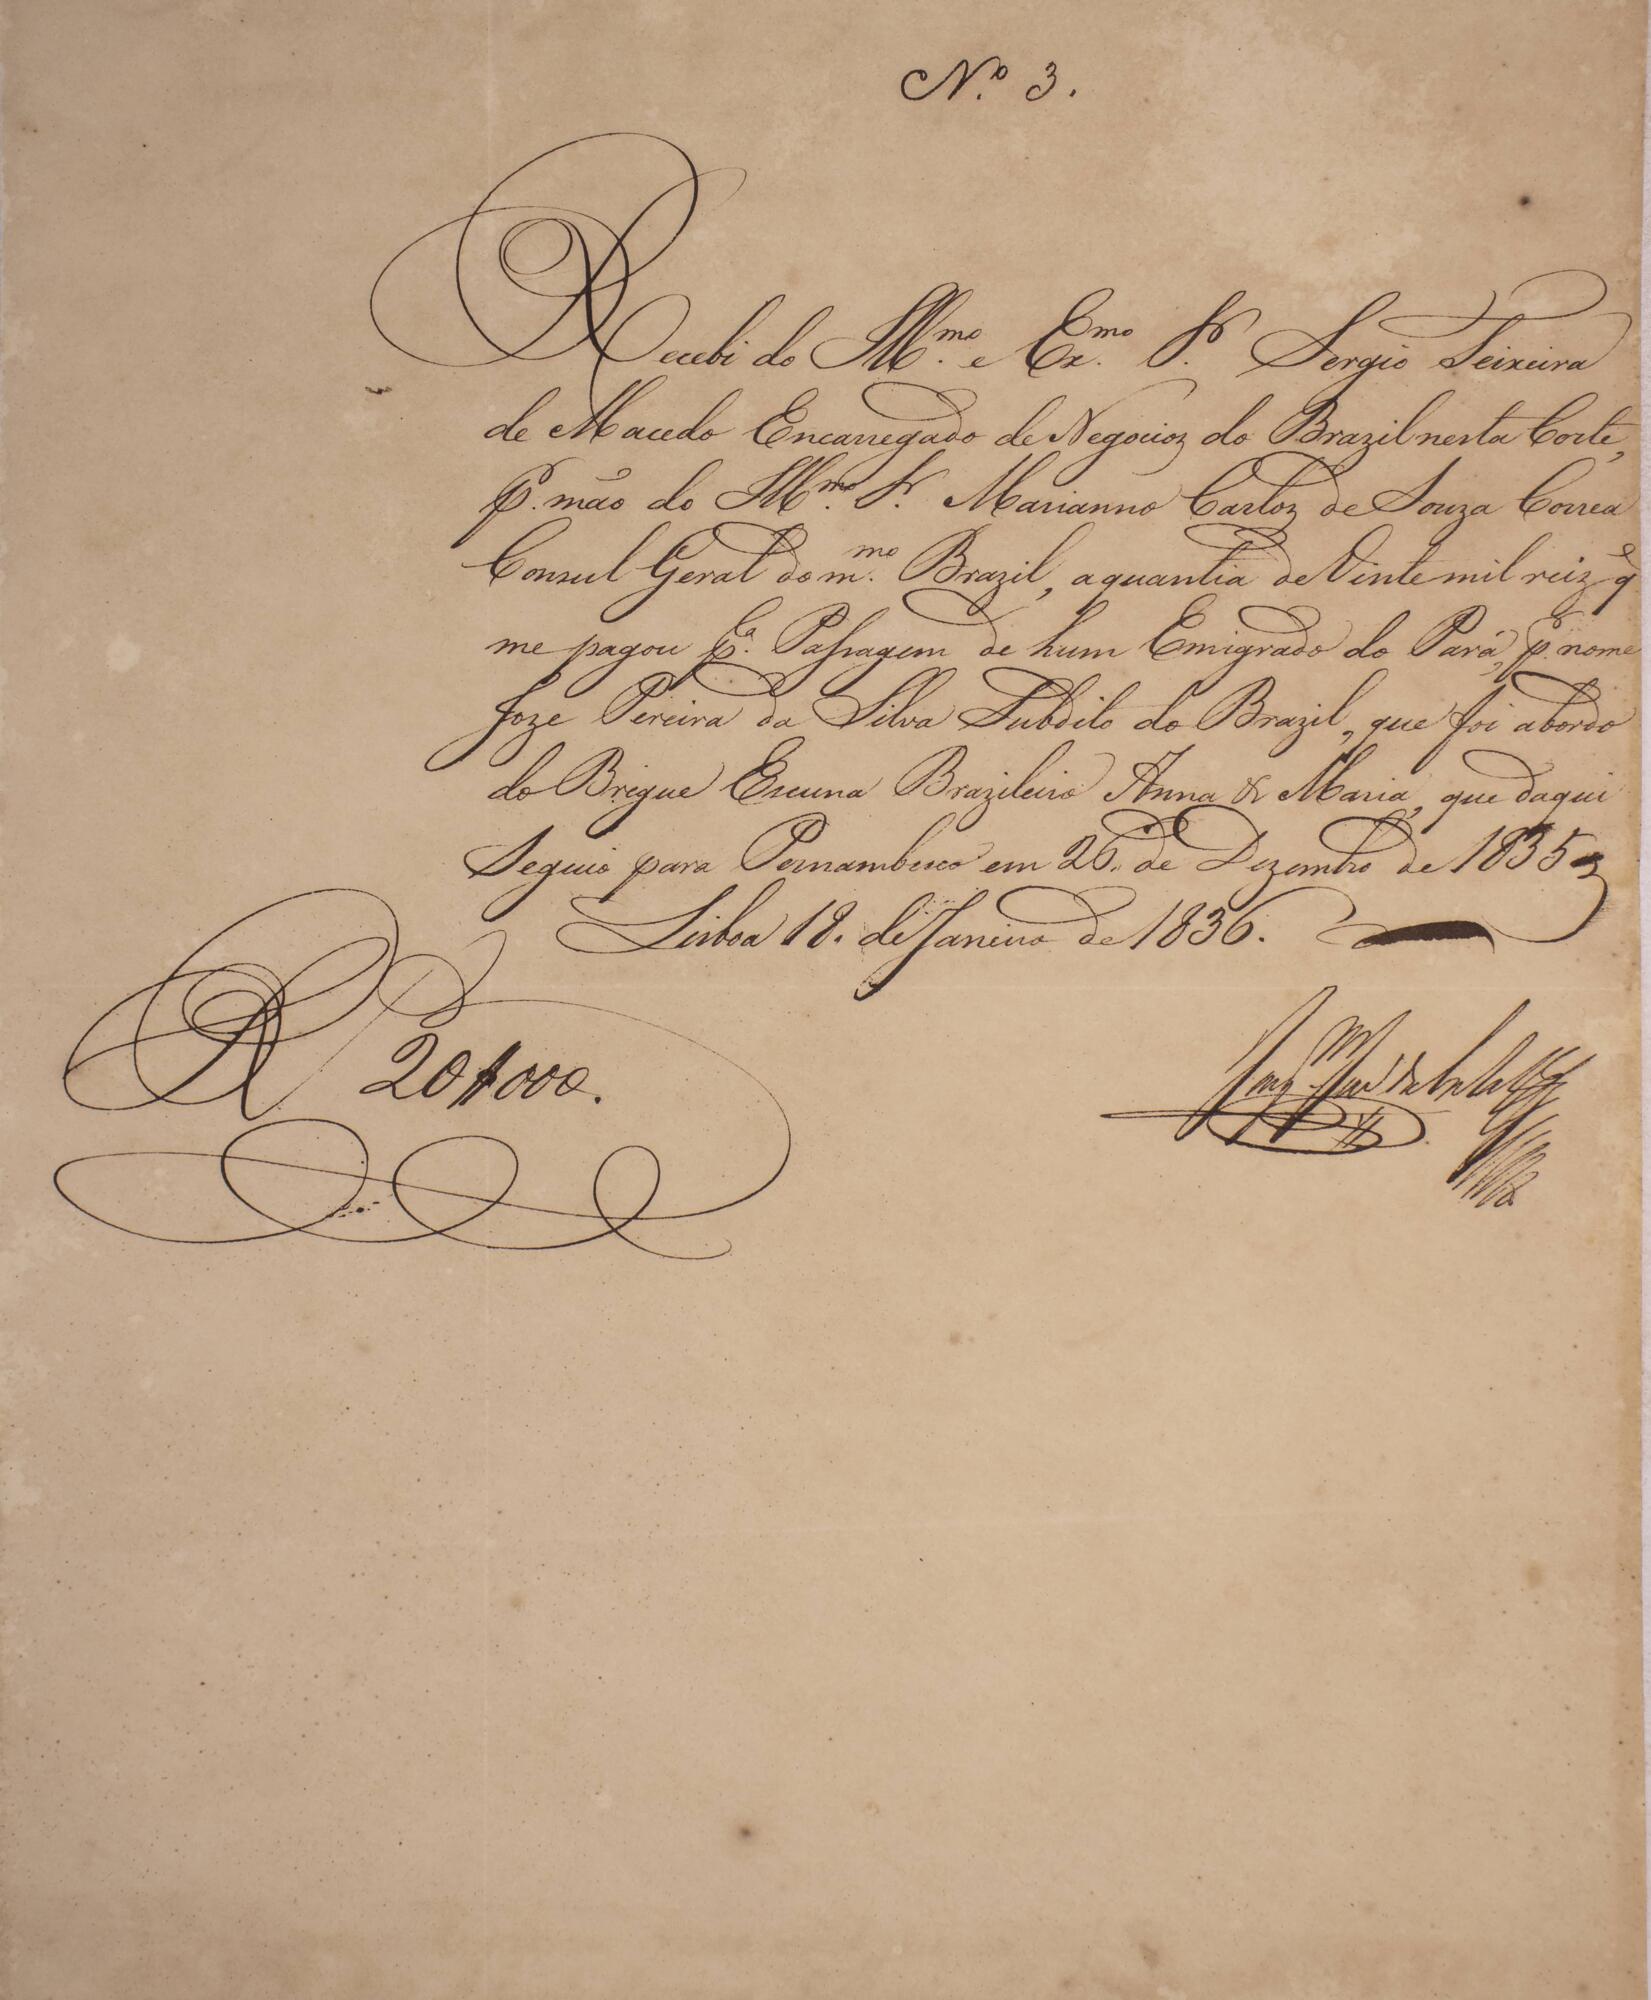 N.º 3.
Recebi do Ill.mo e Ex.mo Sr. Sergio Teixeira
de Macedo Encarregado de Negocios do Brazil nesta Corte,
p. mão do Ill.mo Sr. Marianno Carlos de Souza Correa
Consul Geral do m.mo Brazil, a quantia de Vinte mil reiz q̃
me pagou p.ª Passagem de hum Emigrado do Pará, p. nome
Joze Pereira da Silva Subdito do Brazil, que foi abordo
do Brigue Escuna Brazileiro Anna & Maria, que daqui
Seguio para Pernambuco em 26. de Dezembro de 1835
Lisboa 18. de Janeiro de 1836.
R 20$000.